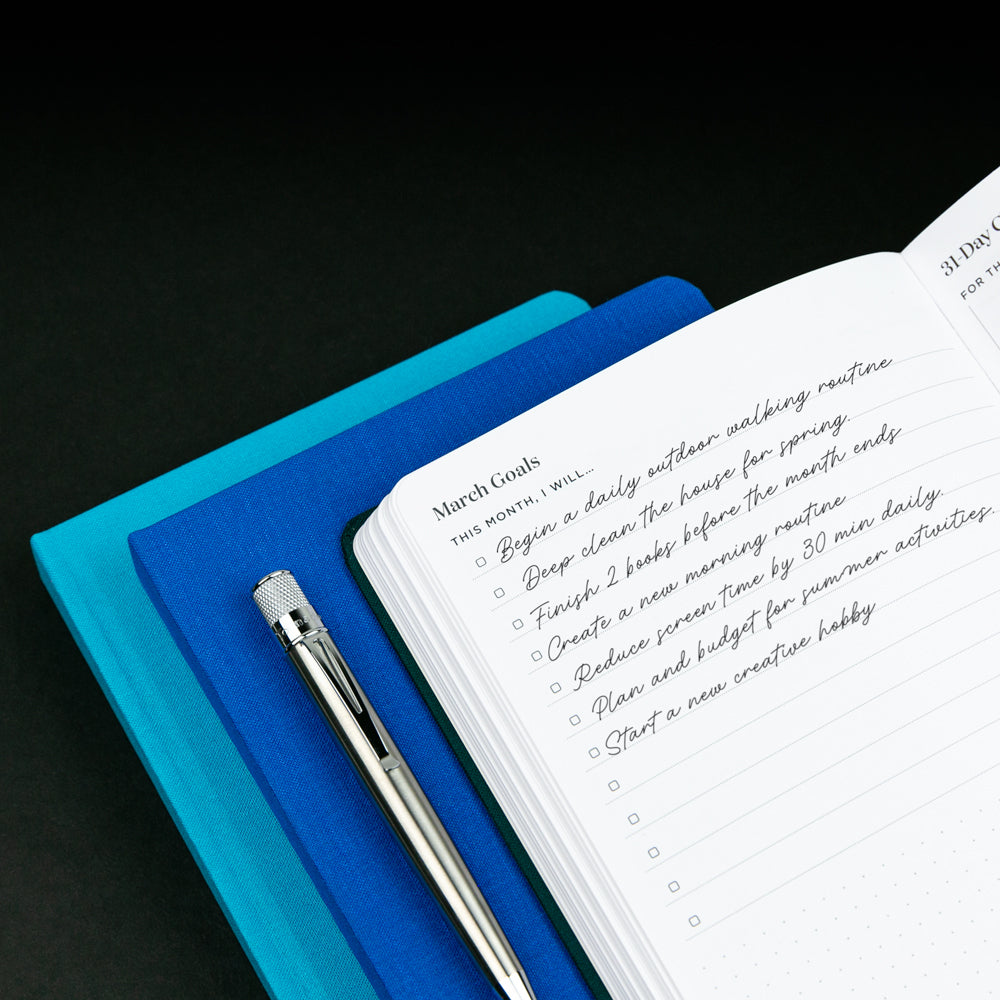 March Goals
THIS MONTH, I WILL...
Begin a daily outdoor walking routine
Deep clean the house for spring.
Finish 2 books before the month ends
Create a new morning routine
Reduce screen time by 30 min daily.
Plan and budget for summer activities.
Start a new creative hobby
31-Day
FOR